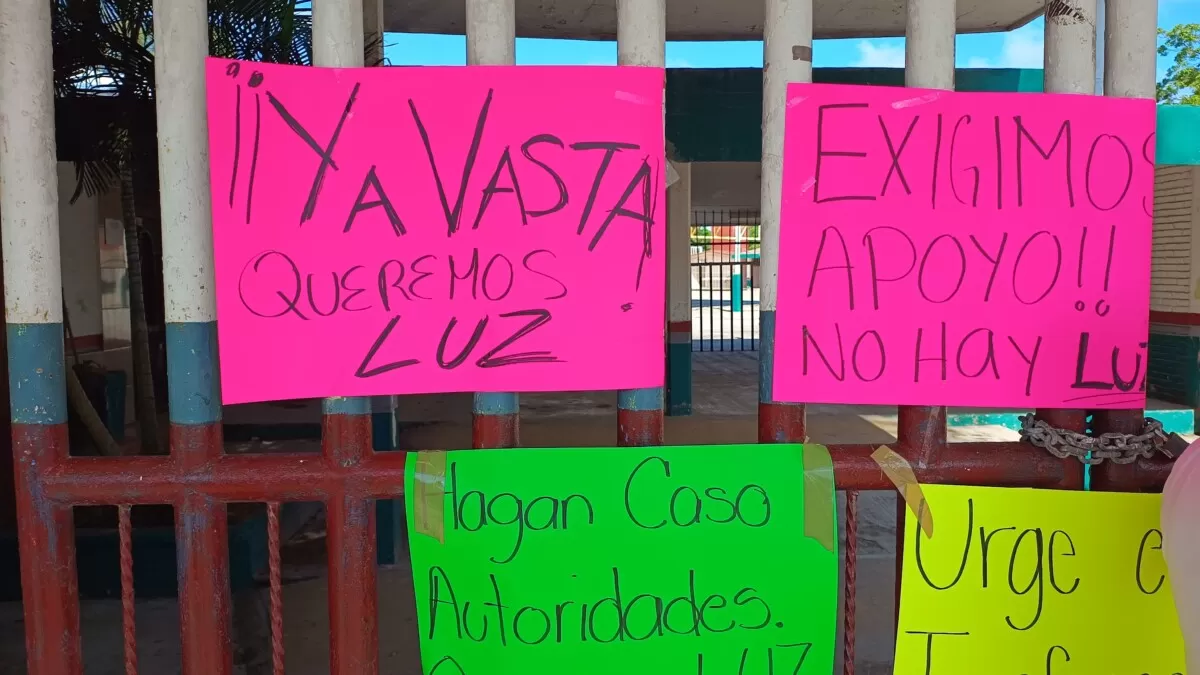 ¡¡YA VASTA!
QUEREMOS
LUZ
EXIGIMOS
APOYO!!
NO HAY LUZ
Hagan Caso
Autoridades.
LUZ
Urge e